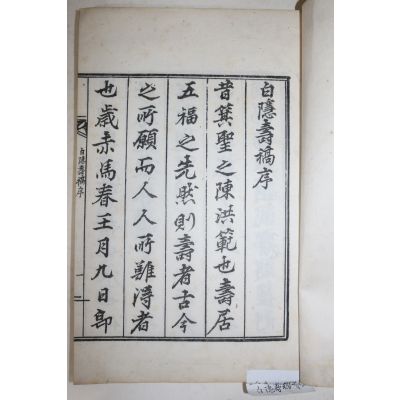 白隱壽稿序
昔箕聖之陳洪範也壽居
五福之先然則壽者古今
之所願而人人所難得者
也歲赤馬春王月九日卽
白隱壽稿序
一